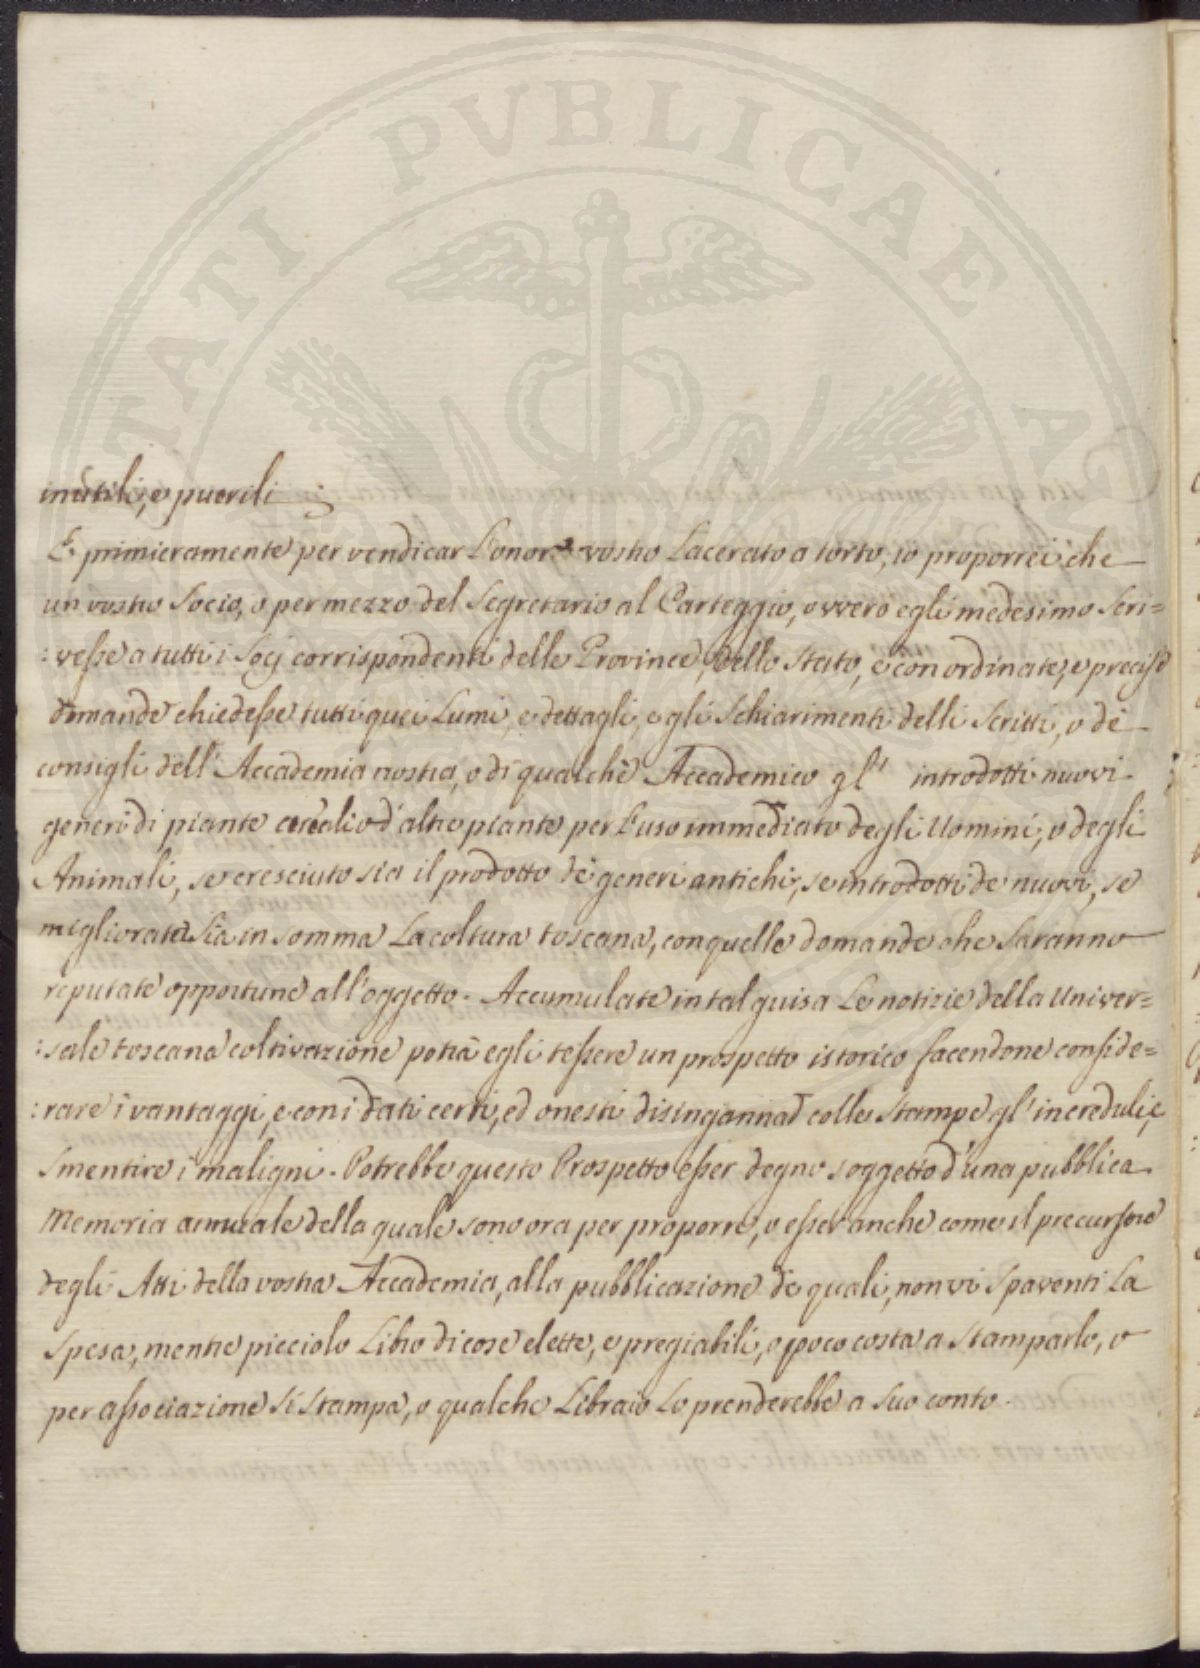 TATI PVBLICAE AV
inutili, e puerili ;
E primieramente per vendicar l'onore vostro lacerato a torto, io proporrei che
un vostro Socio, o per mezzo del Segretario al Carteggio, ovvero egli medesimo Scri=
:vesse a tutti i Socj corrispondenti delle Province, dello Stato, e con ordinate, e precise
domande chiedesse tutti quei Lumi, e dettagli, e gli Schiarimenti delli Scritti, o de
consigli dell' Accademia nostra, o di qualche Accademico gl' introdotti nuovi
generi di piante cereali o d'altre piante per l'uso immediato degli Uomini, o degli
Animali, se cresciuto sia il prodotto de generi antichi, se introdotti de nuovi, se
migliorata Sia in somma La coltura toscana, con quelle domande che Saranno
reputate opportune all'oggetto. Accumulate in tal guisa Le notizie della Univer=
:sale toscana coltivazione potrà egli tessere un prospetto istorico facendone conside=
:rare i vantaggi, e con i dati certi, ed onesti disingannar colle Stampe gl'increduli, e
Smentire i maligni. Potrebbe questo Prospetto esser degno soggetto d'una pubblica
Memoria annuale della quale sono ora per proporre, o esser anche come il precursore
degli Atti della vostra Accademia, alla pubblicazione de quali, non vi Spaventi La
Spesa, mentre picciolo Libro di cose elette, e pregiabili, o poco costa a Stamparlo, o
per associazione Si Stampa, o qualche Libraio Lo prenderebbe a Suo conto.